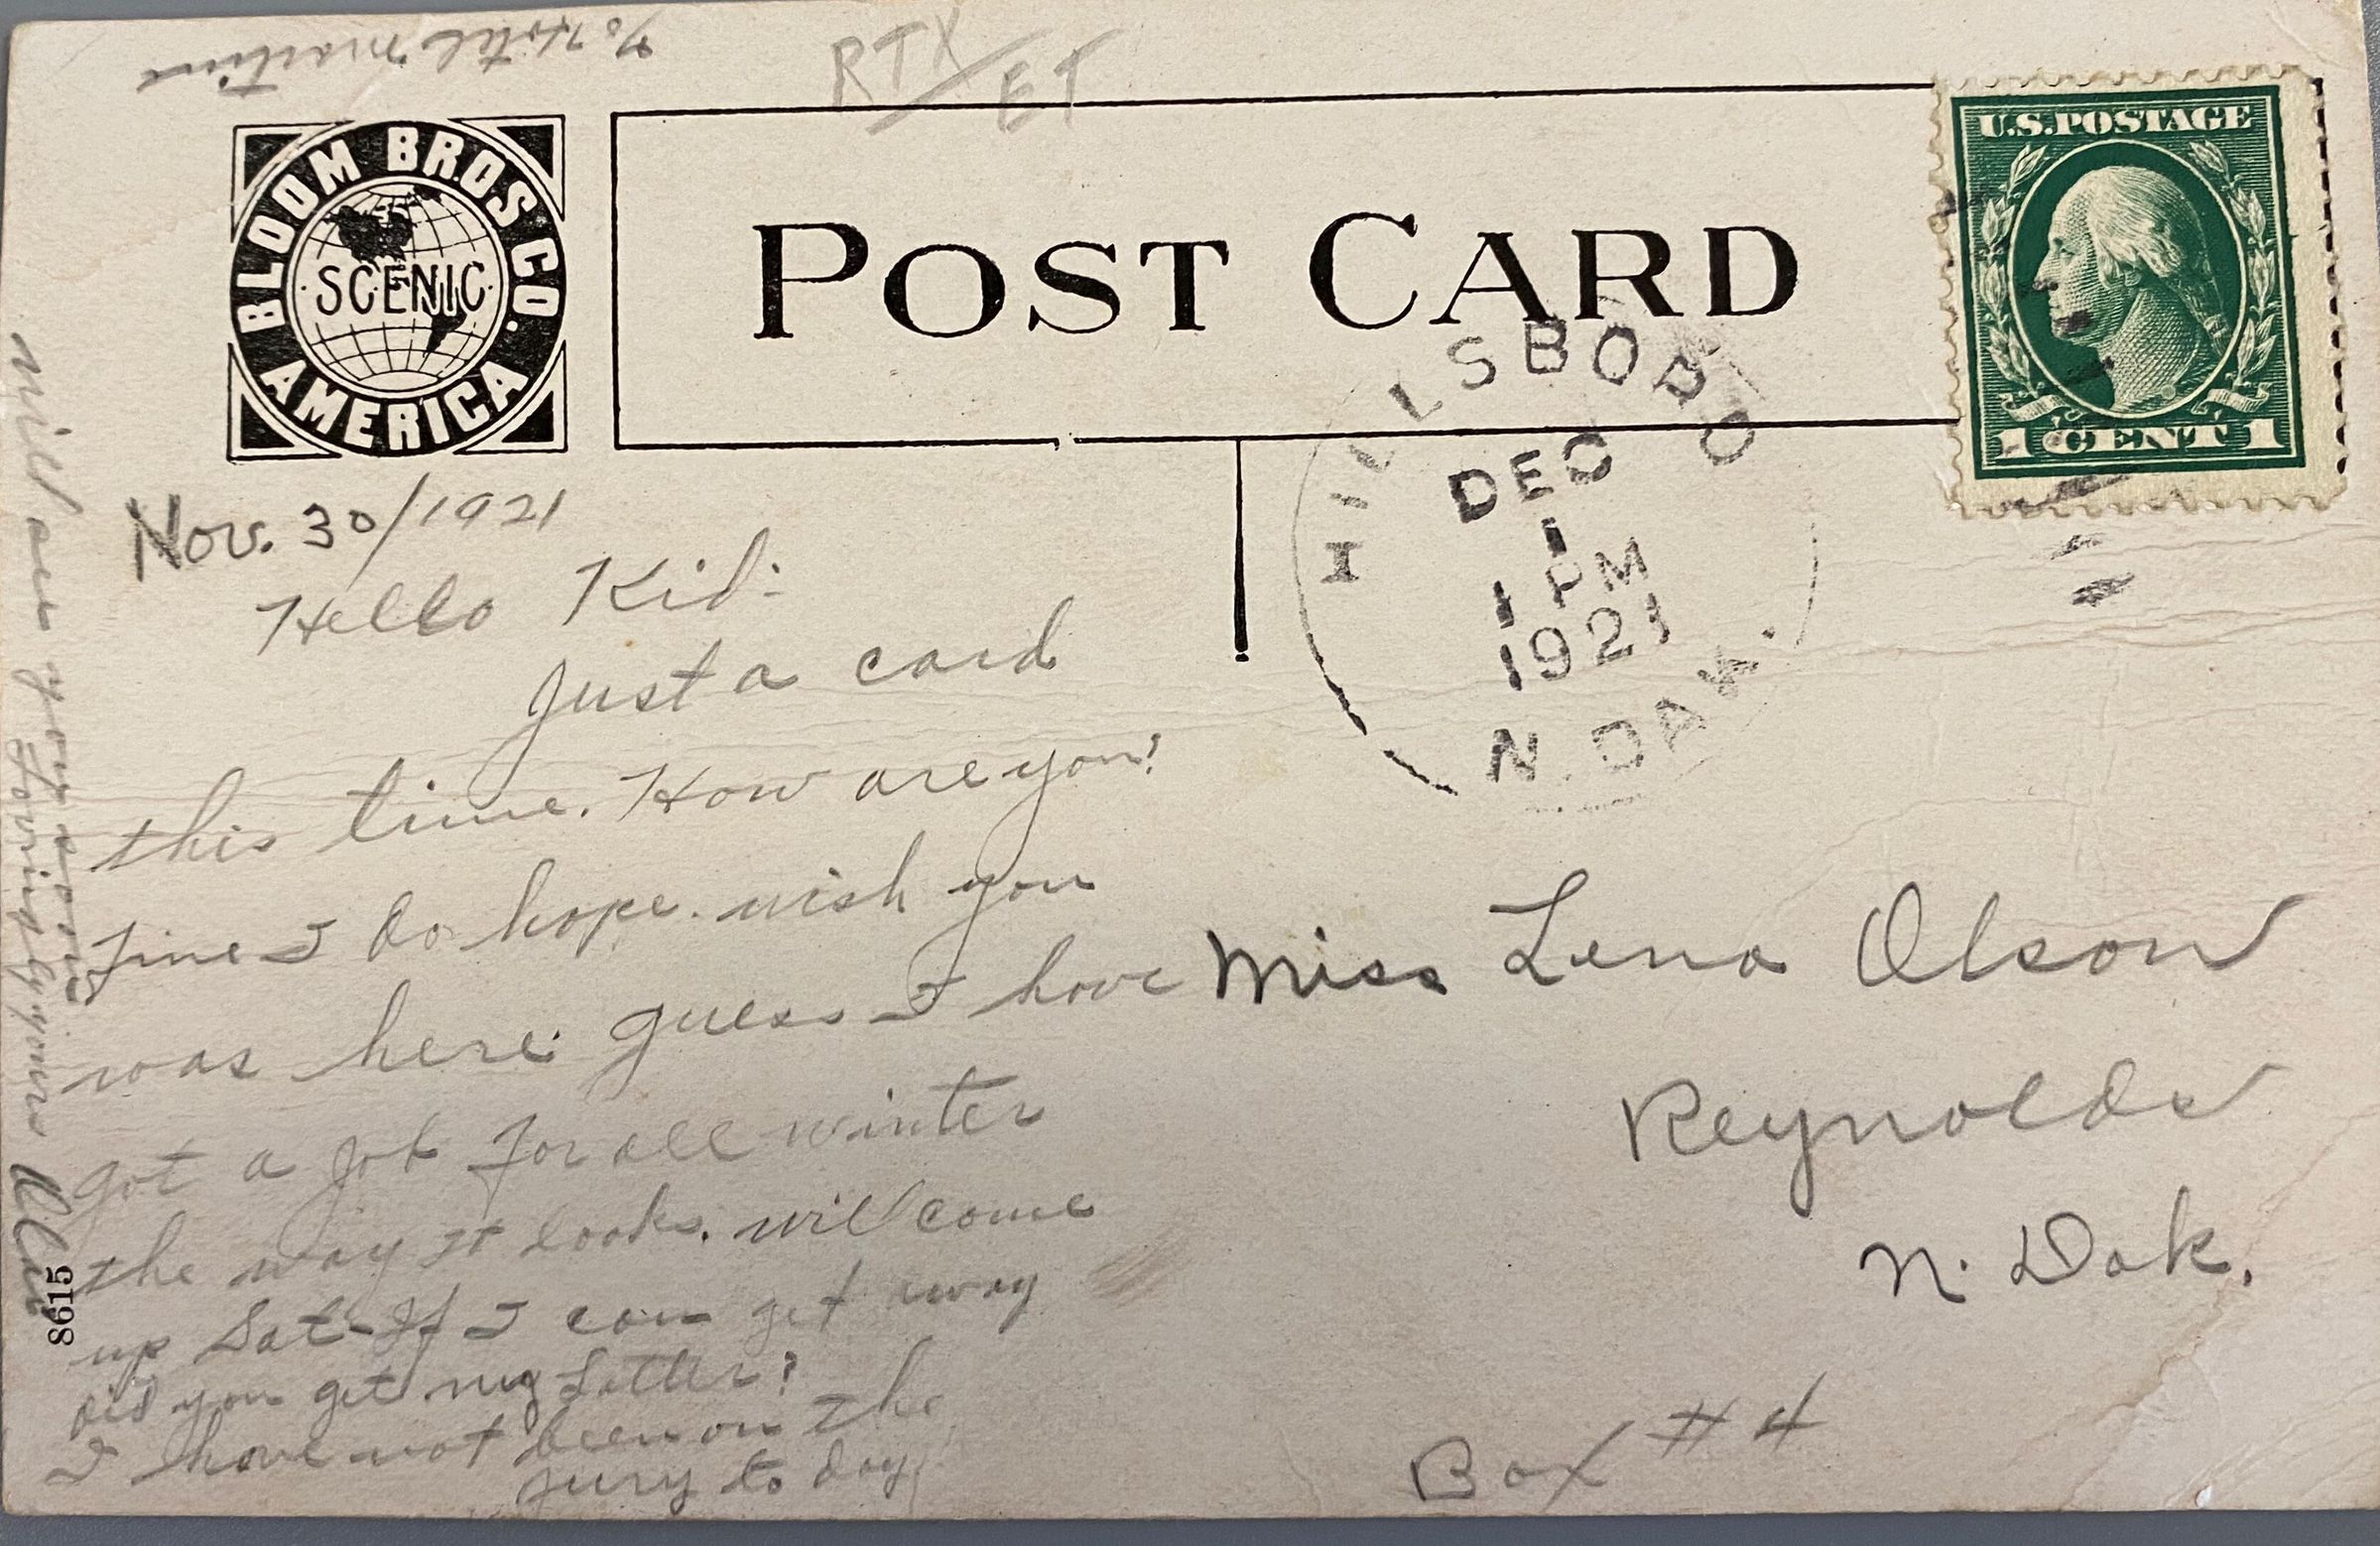 % Hotel
RTX/ET
BLOOM BROS. CO.
SCENIC
AMERICA
POST CARD
U.S. POSTAGE
1 CENT 1
HILLSBORO
DEC
1
1 PM
1921
N. DAK.
Nov. 30/1921
Hello Kid:
Just a card
this time. How are you?
Fine I do hope. wish you
was here. guess I have
got a job for all winter
the way it looks. will come
up Sat-If I can get away
did you get my letter?
I have not been on the
jury to day
will see you soon
Lovingly yours
8615
Miss Lena Olson
Reynolds
N. Dak.
Box #4